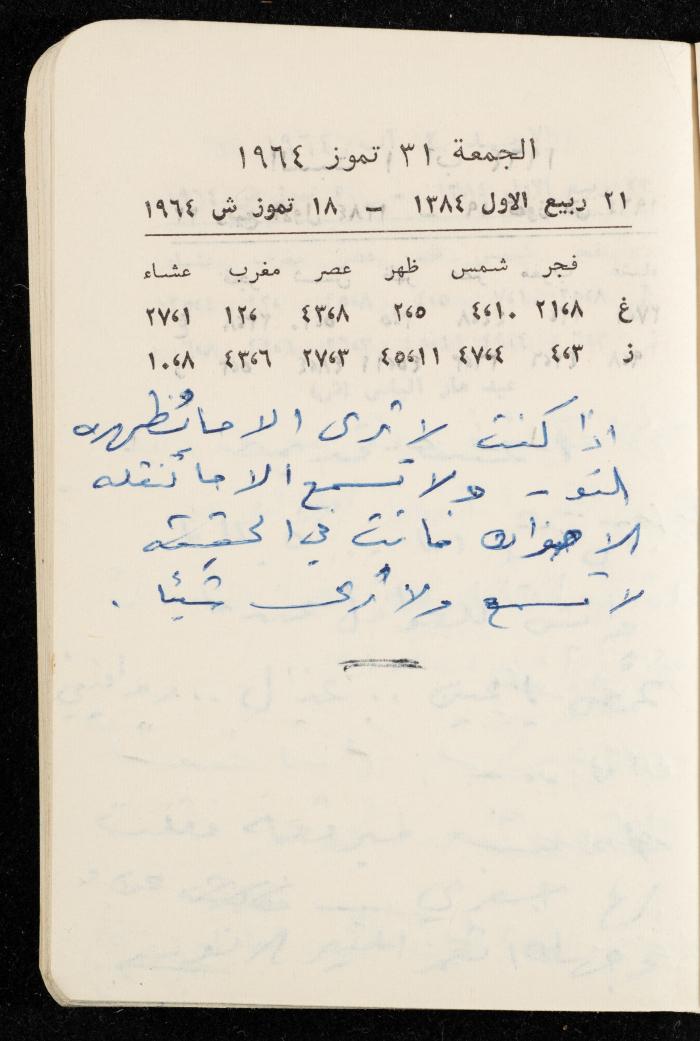 الجمعة ٣١ تموز ١٩٦٤
٢١ ربيع الاول ١٣٨٤ – ١٨ تموز ش ١٩٦٤
فجر شمس ظهر عصر مغرب عشاء
غ ٢١،٨ ٤،١٠ ٢،٥ ٤٣،٨ ١٢، ٢٧،١
ز ٤،٣ ٤٧،٤ ٤٥،١١ ٢٧،٣ ٤٣،٦ ١٠،٨
اذا كنت لا ترى الا ما تُظهره
النور ولا تسمع الا ما تنقله
الاصوات فانت في الحقيقه
لا تسمع ولا ترى شيئا .